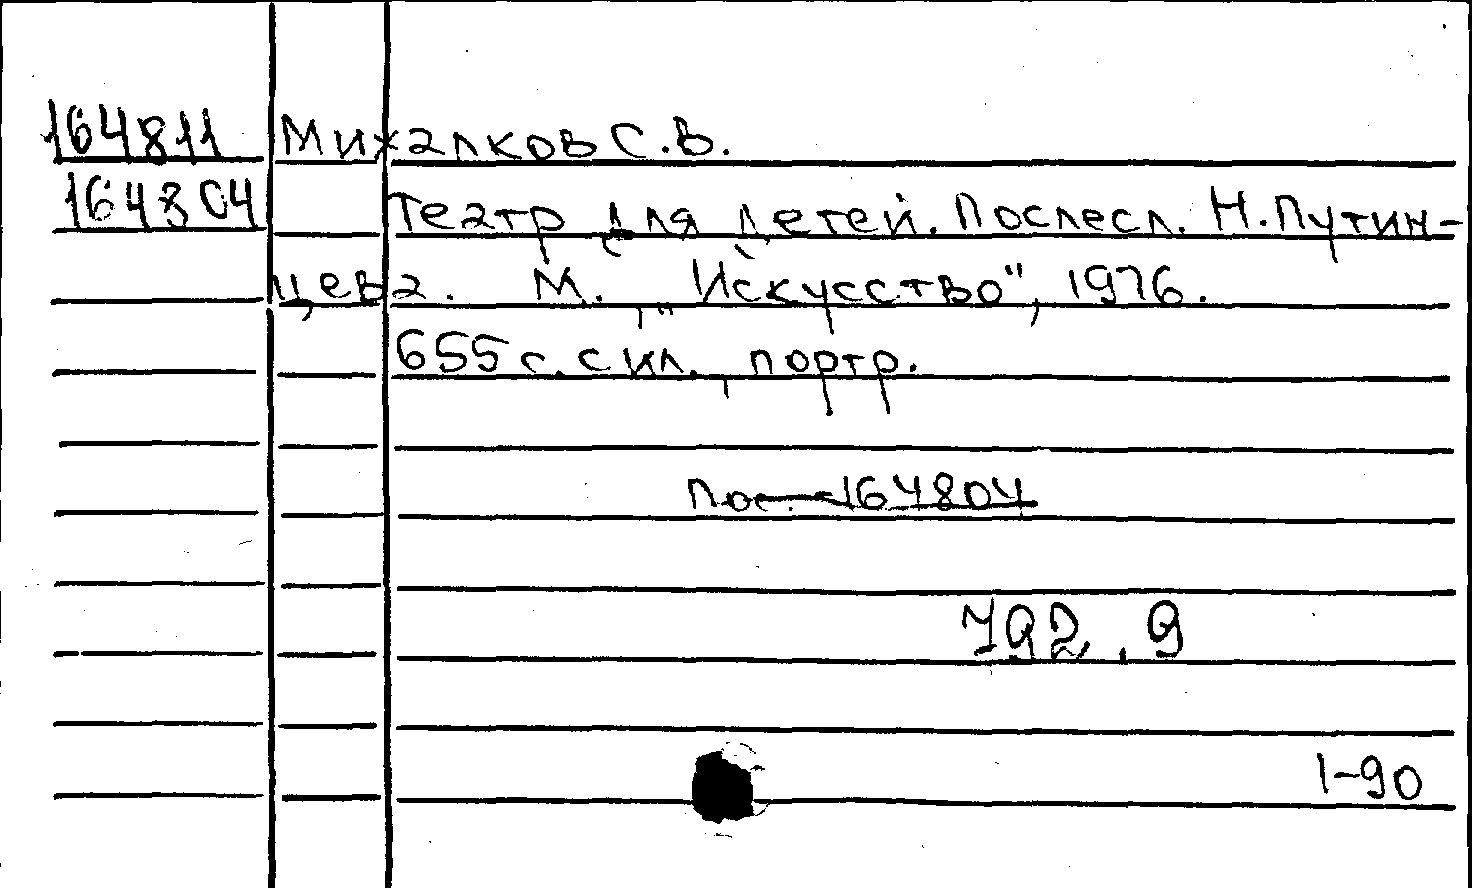 164811 Михалков С.В.
164804 Театр для детей. Послесл. Н. Путин-
цева. М., "Искусство", 1976.
655 с. с ил., портр.
Пос. 164804
792.9
1-90